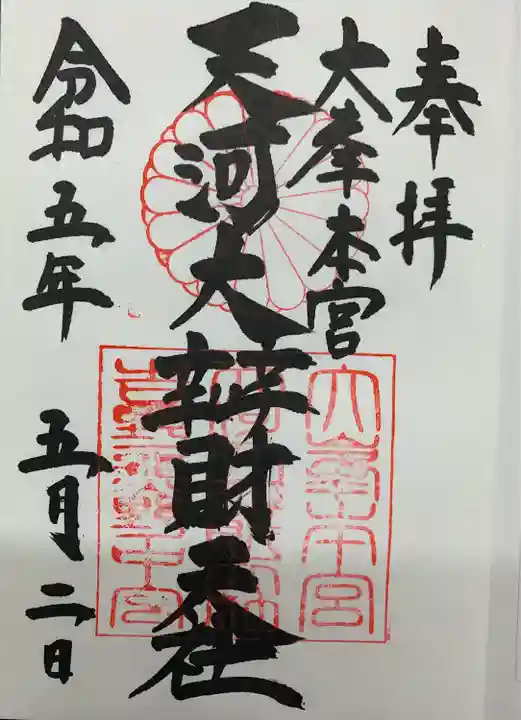 奉拝
大峯本宮
天河大辨財天社
令和五年
五月二日